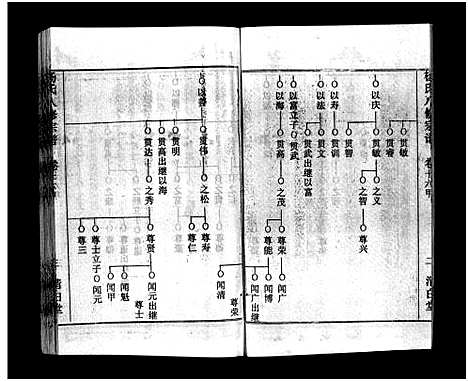 杨氏八修宗谱 卷十六甲
二
清白堂
以庆
贯敏
贯睿
之义
之智
尊兴
以寿
贯训
贯智
以法
贯文
以富立子贯武
贯武出继以富
以海
贯高
之茂
尊荣
尊能
闻广
闻博
闻广出继尊荣
闻清
以善
贯伟
贯明
贯高出继以海
贯达
之松
之秀
尊寿
尊仁
尊贤
尊士立子闻元
尊三
闻元出继尊士
闻魁
闻甲
杨氏八修宗谱
三
清白堂